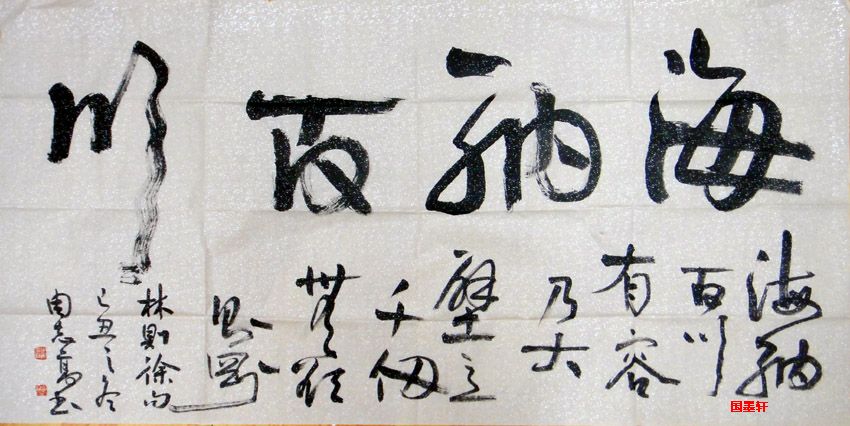 海納百川
海納
百川
有容
乃大
壁立
千仞
無欲
則剛
林則徐句
己丑之冬
周志高書
国墨轩